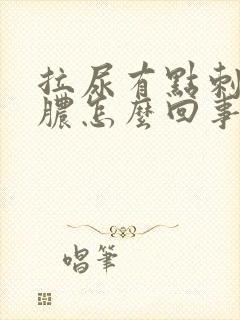 拉尿有點刺
膿怎麼回事
唱筆